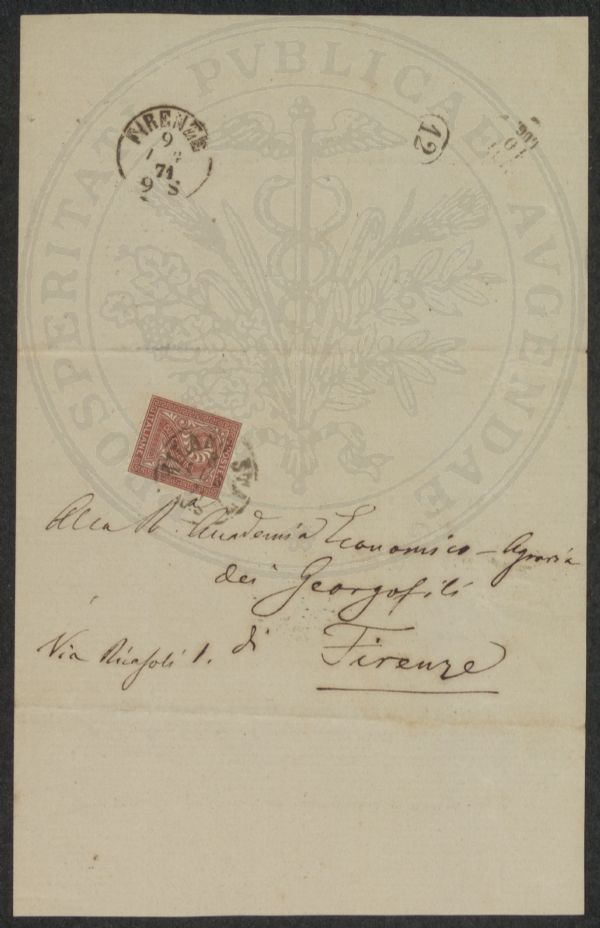 PROSPERITATI PVBLICAE AVGENDAE
FIRENZE
9
71
9 S
12
10
POSTE
ITALIANE
Alla R. Accademia Economico-Agraria
dei Georgofili
di Firenze
Via Ricasoli 1.